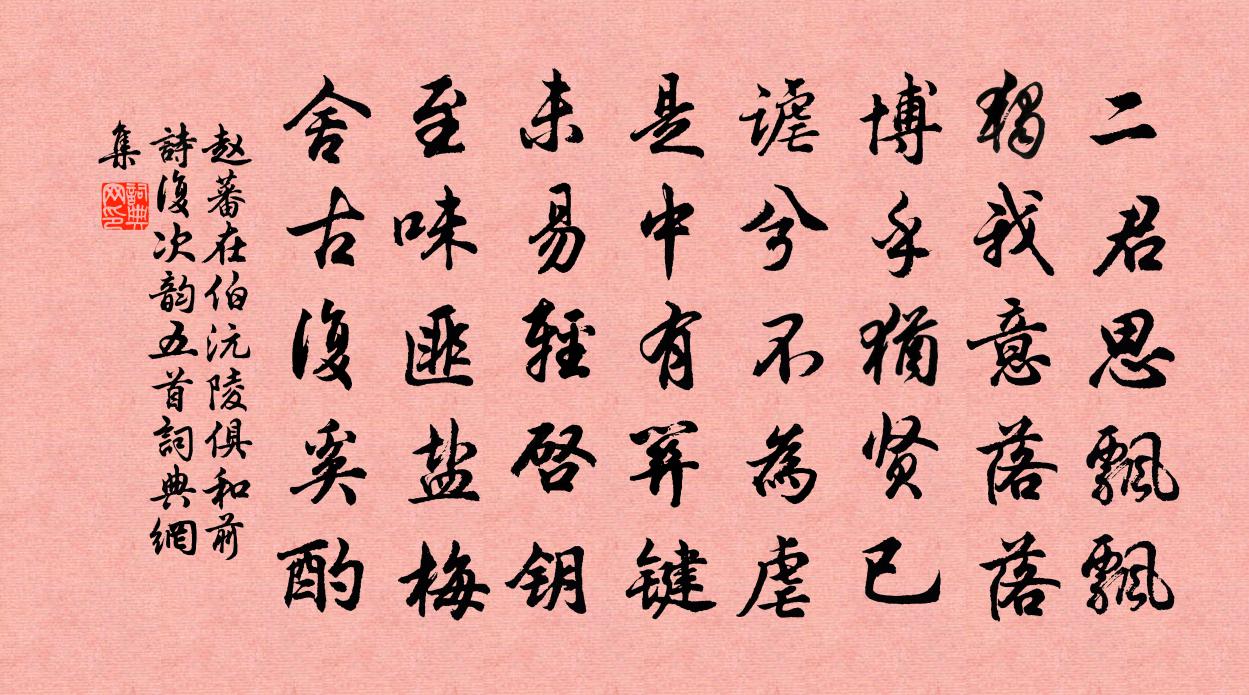 二君思飄飄
獨我意落落
博乎猶贤已
謔兮不為虐
是中有関键
未易輕啓钥
至味匪盐梅
舍古復奚酌
赵蕃在伯沅陵俱和前
詩復次韵五首詞典網
集
詞典网印